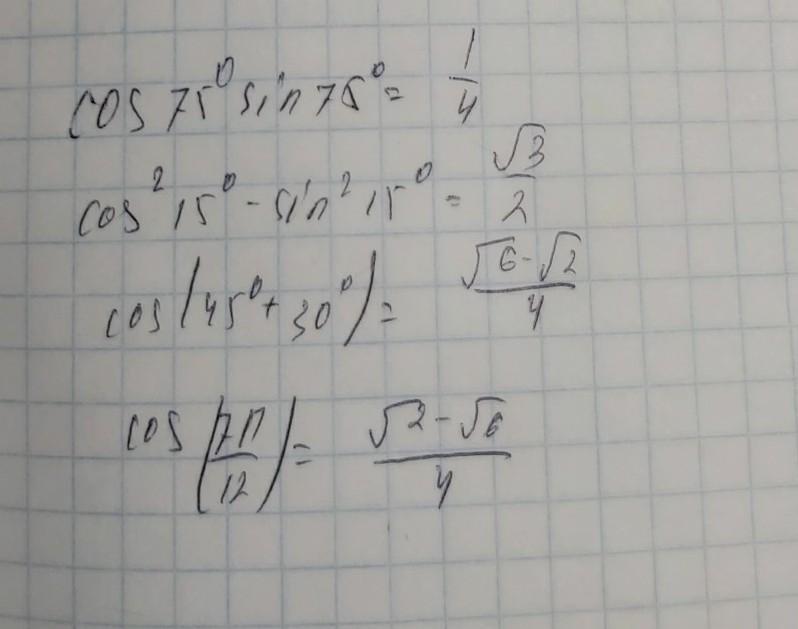 cos 75° sin 75° = 1/4
cos² 15° - sin² 15° = √3/2
cos(45° + 30°) = (√6 - √2)/4
cos(7π/12) = (√2 - √6)/4